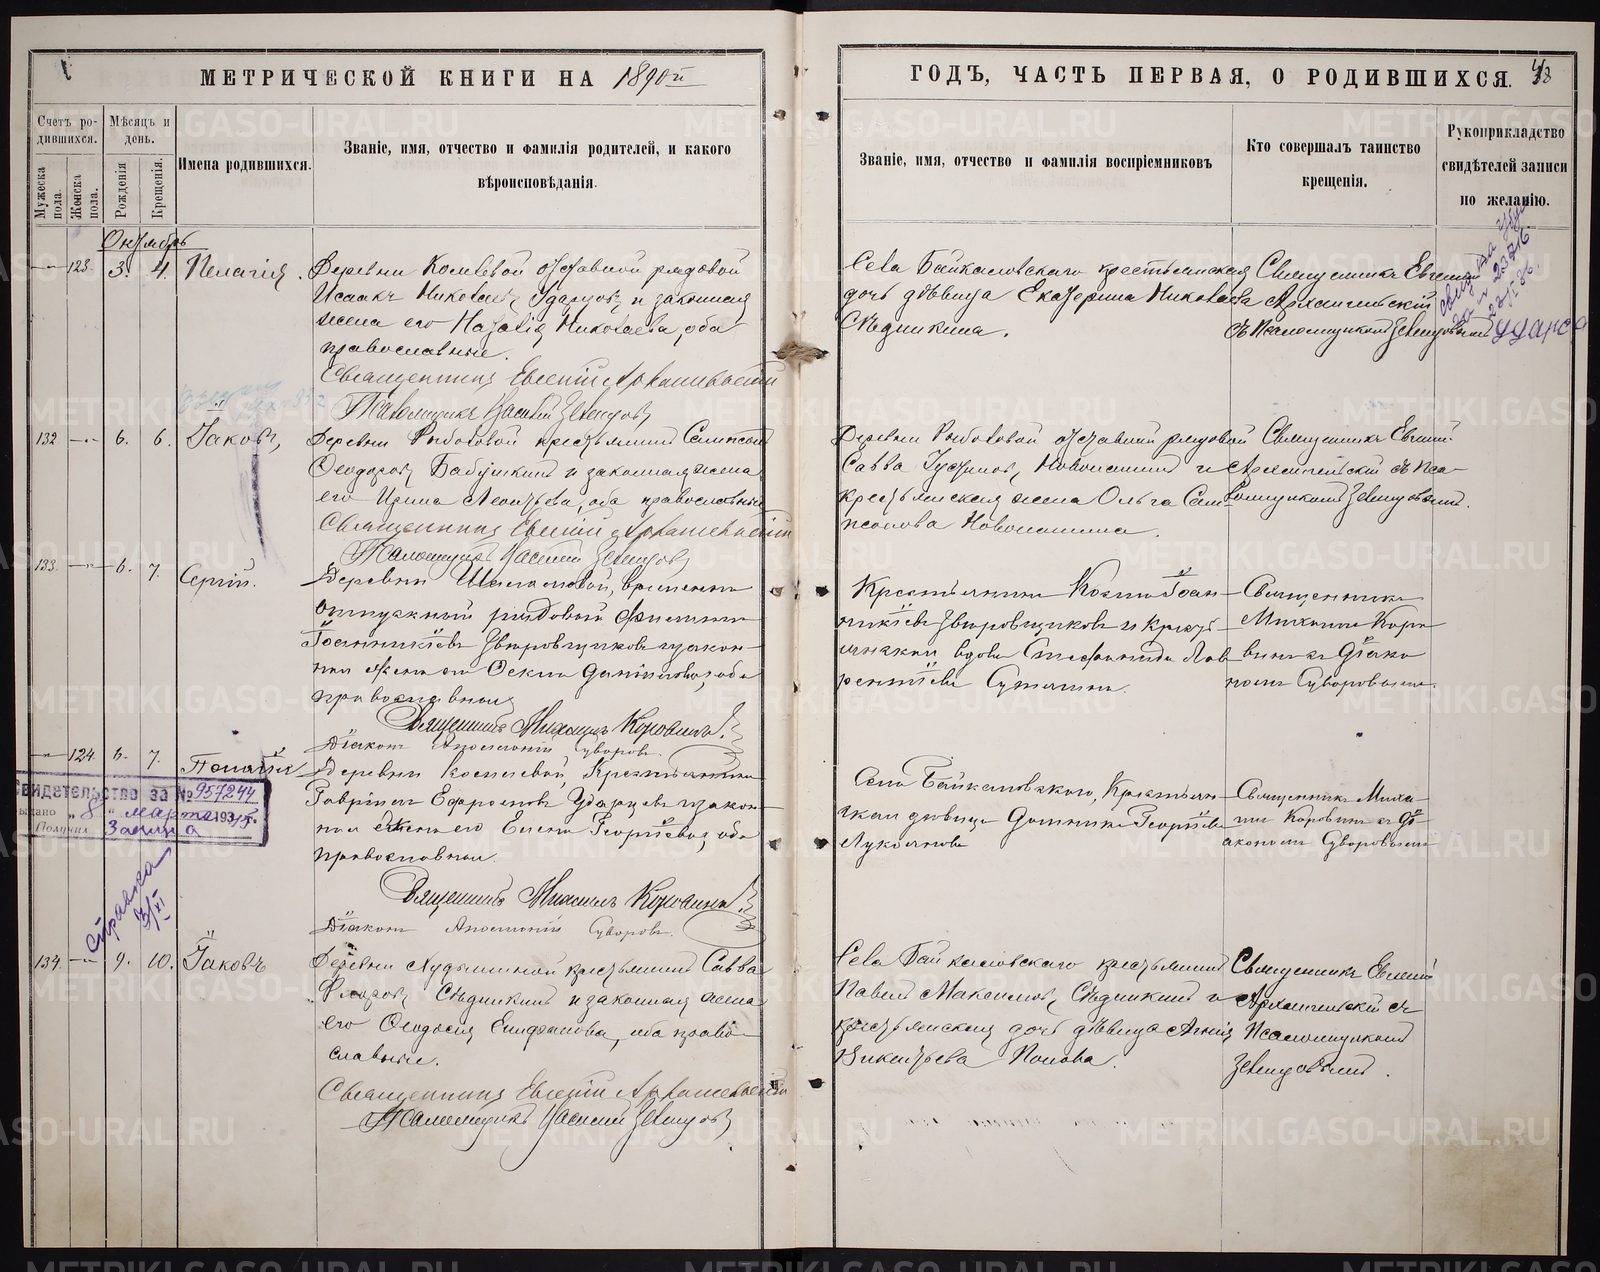 МЕТРИЧЕСКОЙ КНИГИ НА 1890й
ГОДЪ, ЧАСТЬ ПЕРВАЯ, О РОДИВШИХСЯ.
Счетъ родившихся.
Мужеска пола.
Женска пола.
Мѣсяцъ и день.
Рожденія
Крещенія.
Имена родившихся.
Званіе, имя, отчество и фамилія родителей, и какого
вѣроисповѣданія.
Званіе, имя, отчество и фамилія воспріемниковъ
Кто совершалъ таинство
крещенія.
Рукоприкладство
свидѣтелей записи
по желанію.
Октябрь
123. 3. 4. Пелагія.
Деревни отставной рядовой
Исаакъ Николаевъ Ударцовъ и законная
жена его Наталія Николаева, оба
православные.
Священникъ Евгеній Архангельскій
Псаломщикъ Василій
Села Байкаловскаго крестьянская
дочь дѣвица Екатерина Николаева
Сѣдышкина.
Священникъ Евгеній
Архангельскій
съ Псаломщикомъ
132 6. 6. Іаковъ,
Деревни крестьянинъ Сампсонъ
Ѳеодоровъ Бабушкинъ и законная жена
его Ирина Леонтьева, оба православные
Священникъ Евгеній Архангельскій
Псаломщикъ Василій
Деревни отставной рядовой
Савва и
крестьянская жена Ольга Сам-
псонова
Священникъ Евгеній
Архангельскій съ Пса-
ломщикомъ
133. 6. 7. Сергій.
Деревни временно
отпускной рядовой Филиппъ
Іоанникіевъ Зверовщиковъ и закон-
ная жена его Ѳекла Даніилова, оба
православныя
Священникъ Михаилъ Коровинъ.
Діаконъ Аполлоній Суворовъ.
Крестьянинъ Козма Іоан-
никіевъ Зверовщиковъ и крест-
янская вдова Стефанида Лав-
рентіева
Священникъ
Михаилъ Коро-
винъ съ Діако-
номъ Суворовымъ.
124. 6. 7. Пелагія
Деревни Крестьянинъ
Гавріилъ Ефремовъ Ударцевъ и закон-
ная жена его Елена Георгіева, оба
православныя.
Священникъ Михаилъ Коровинъ.
Діаконъ Аполлоній Суворовъ.
Села Байкаловскаго, Крестьян-
ская дѣвица Домника Георгіева
Лукоянова
Священникъ Миха-
илъ Коровинъ съ Ді-
акономъ Суворовымъ
Свидетельство за № 957244
выдано „8 “ марта 1935г.
Получил
Справка
3/XI
134. 9. 10. Іаковъ
Деревни крестьянинъ Савва
Сѣдышкинъ и законная жена
его Ѳеодосія Епифанова, оба право-
славные.
Священникъ Евгеній Архангельскій
Псаломщикъ Василій
Села Байкаловскаго крестьянинъ
Павелъ Максимовъ Сѣдышкинъ и
крестьянская дочь дѣвица Агнія
Викентьева Попова.
Священникъ Евгеній
Архангельскій съ
Псаломщикомъ
METRIKI.GASO-URAL.RU